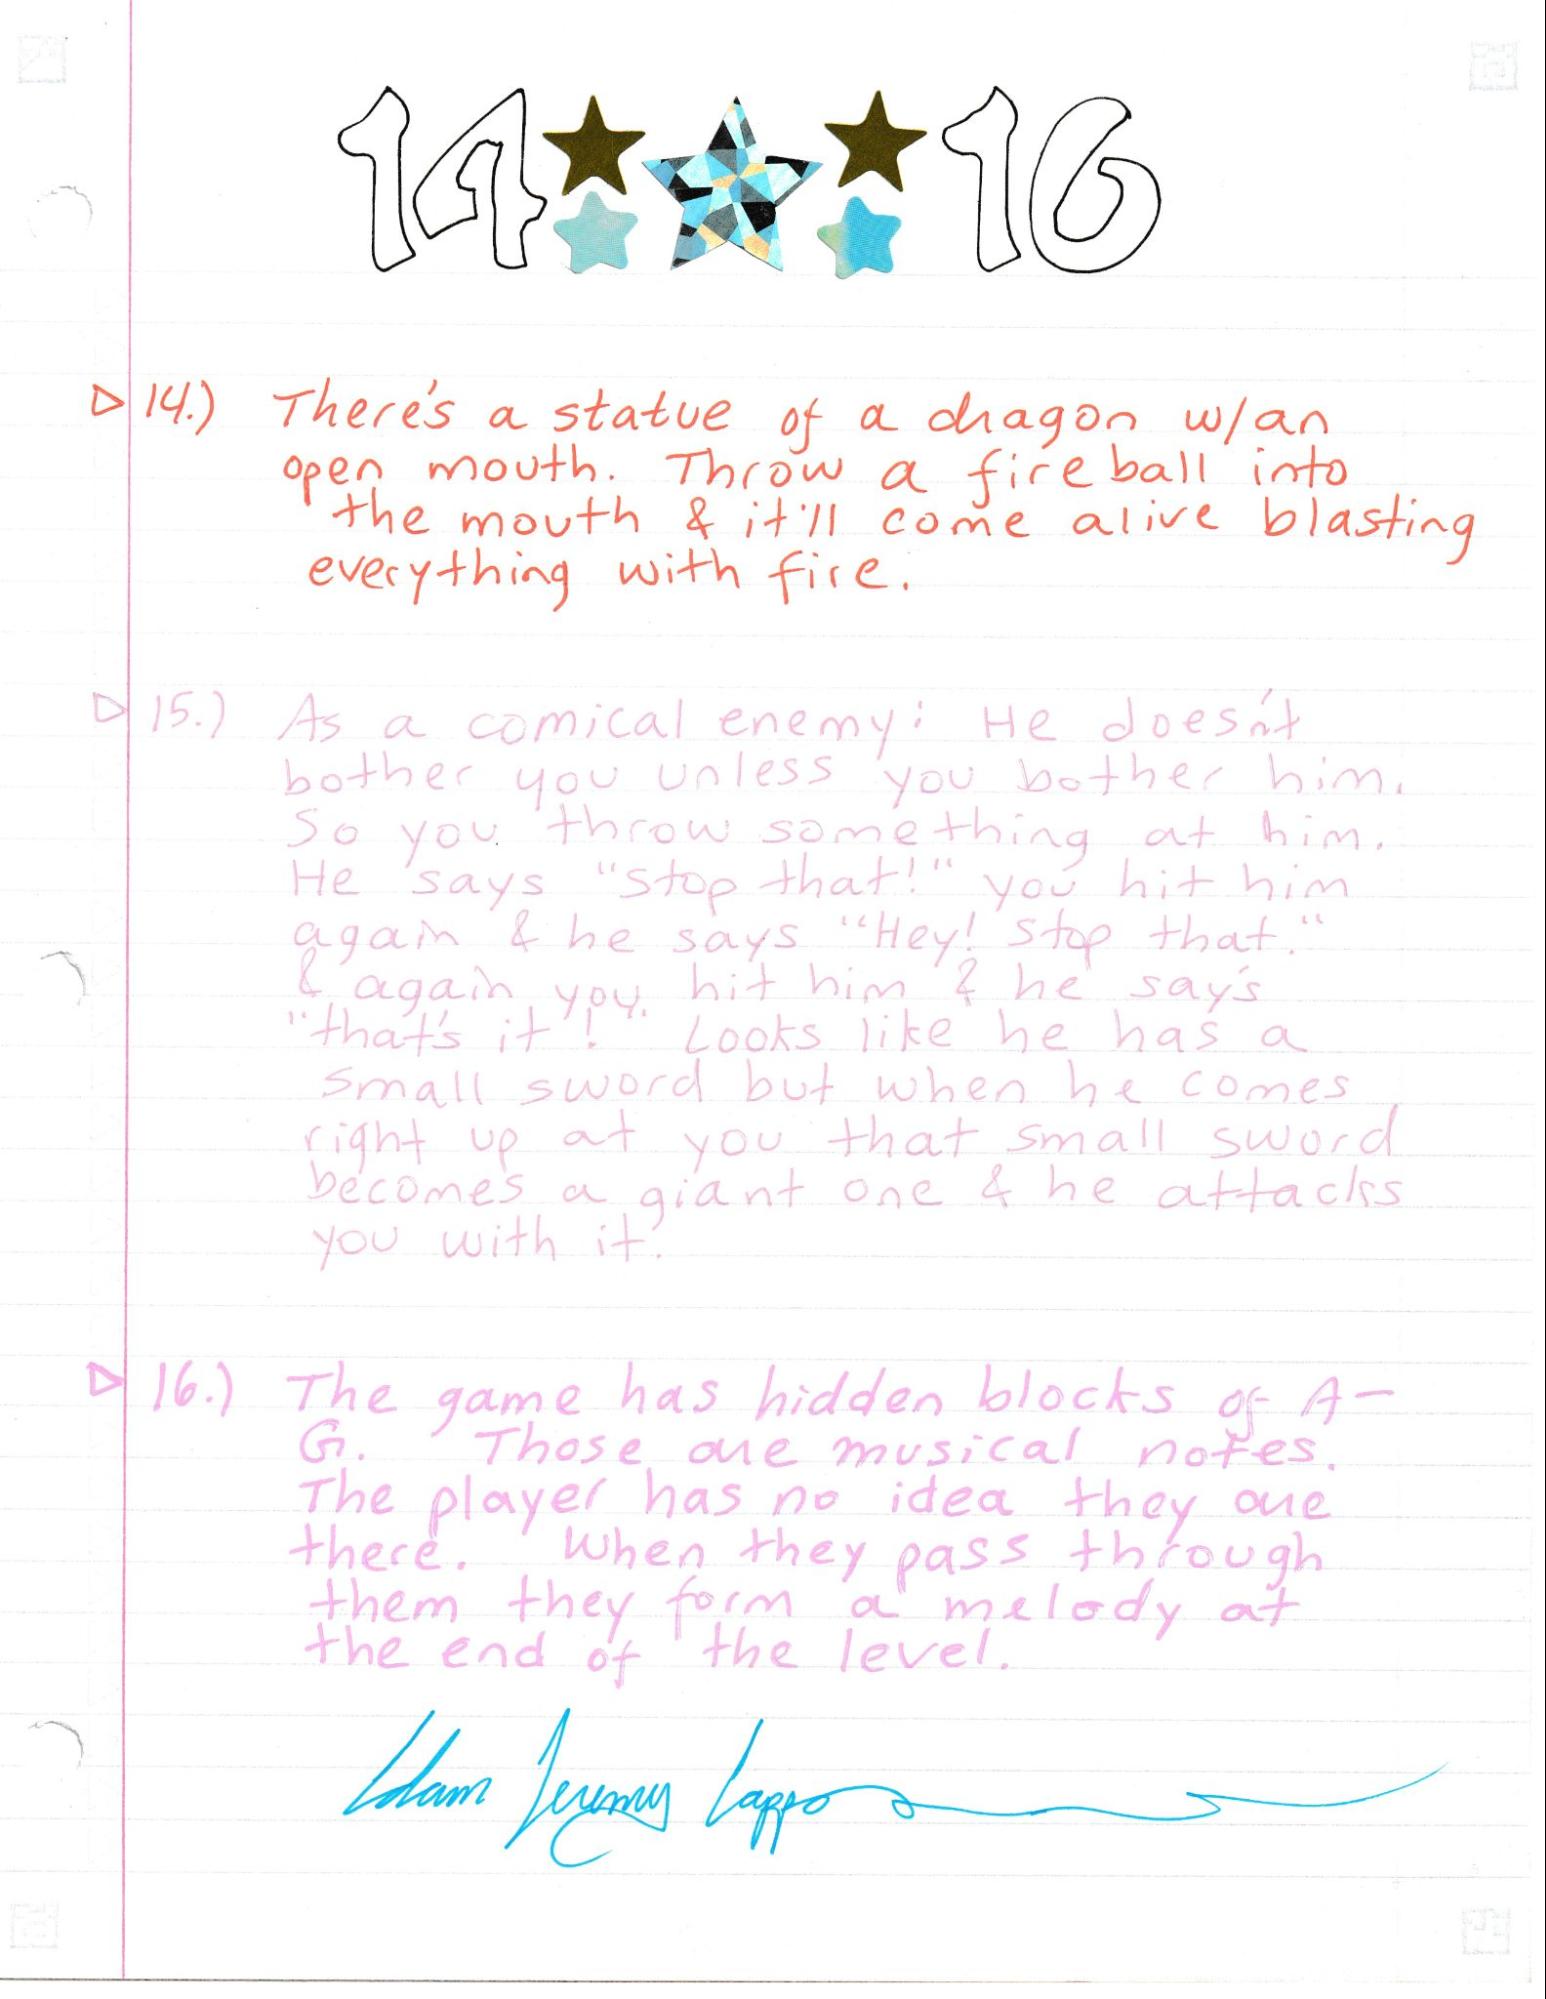 14 16
14.) There's a statue of a dragon w/an
open mouth. Throw a fireball into
the mouth & it'll come alive blasting
everything with fire.
15.) As a comical enemy: He doesn't
bother you unless you bother him.
So you throw something at him.
He says "Stop that!" you hit him
again & he says "Hey! Stop that."
& again you hit him & he say's
"that's it!" Looks like he has a
small sword but when he comes
right up at you that small sword
becomes a giant one & he attacks
you with it.
16.) The game has hidden blocks of A-
G. Those are musical notes.
The player has no idea they are
there. When they pass through
them they form a melody at
the end of the level.
Adam Jeremy Cappo